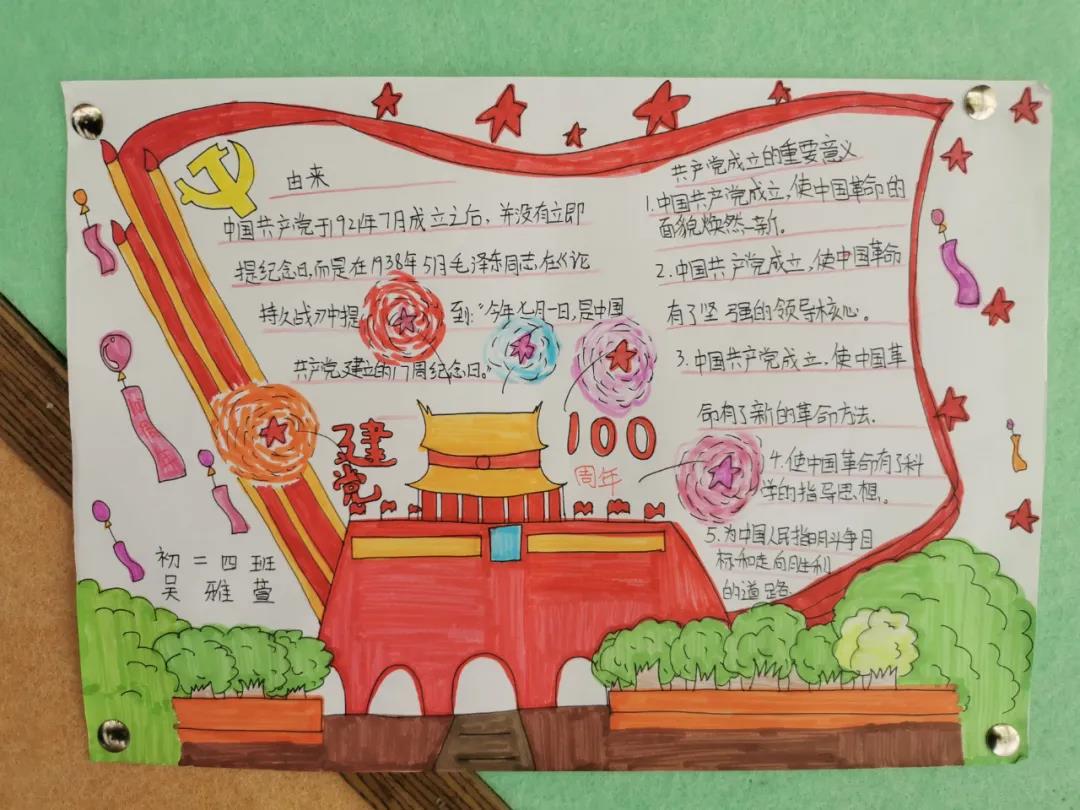 由来
中国共产党于1921年7月成立之后，并没有立即
提纪念日，而是在1938年5月毛泽东同志，在《论
持久战》中提 到："今年七月一日，是中国
共产党建立的17周纪念日。"
建党
100
周年
初二四班
吴雅萱
共产党成立的重要意义
1.中国共产党成立，使中国革命的
面貌焕然一新。
2.中国共产党成立，使中国革命
有了坚强的领导核心。
3.中国共产党成立.使中国革
命有了新的革命方法.
4.使中国革命有了科
学的指导思想。
5.为中国人民指明斗争目
标和走向胜利
的道路.